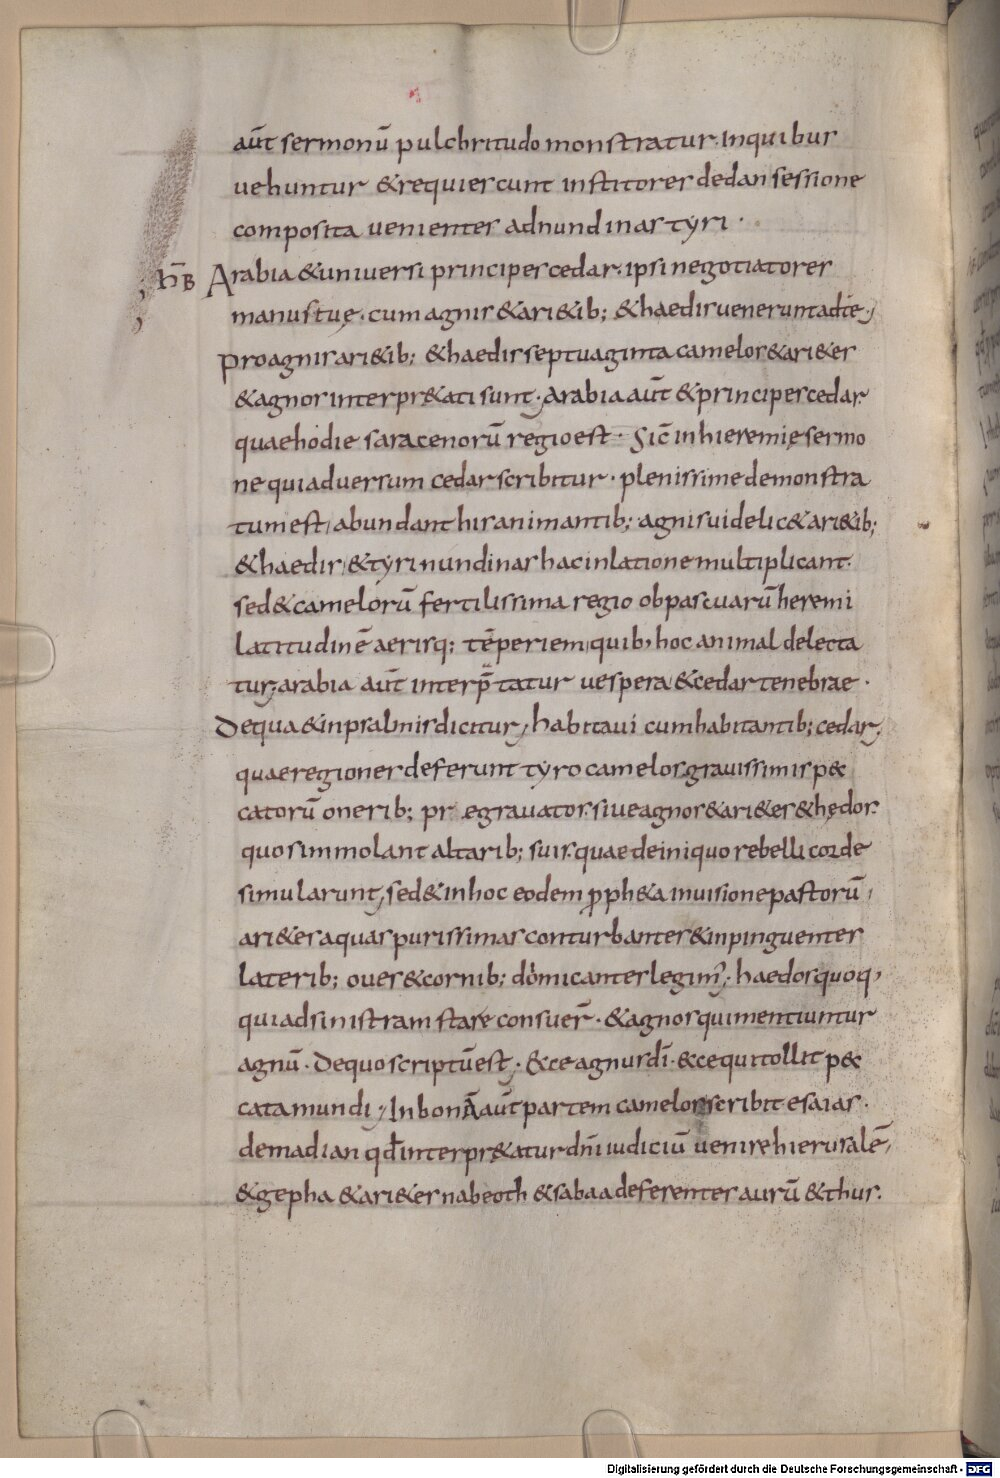 aūt sermonū pulchritudo monstratur. In quibus
uehuntur & requiescunt institores dedan sessione
composita uenientes ad nundinas tyri ·
h̄B Arabia & uniuersi principes cedar. ipsi negotiatores
manus tuę. cum agnis & ari&ib; & haedis uenerunt ad te·
Pro agnis ari&ib; & haedis septuaginta camelos & ari&es
& agnos interpr&ati sunt. Arabia aūt & principes cedar.
quae hodie saracenorū regio est · Sic̄ in hieremię sermo
ne qui aduersum cedar scribitur · plenissime demonstra
tum est, abundant his animantib; agnis uidelic& ari&ib;
& haedis, & tyri nundinas hac inlatione multiplicant.
sed & camelorū fertilissima regio ob pascuarū heremi
latitudinē aerisq; tēperiem, quib; hoc animal delecta
tur, arabia aūt interp̄tatur uespera & cedar tenebrae ·
De qua & in psalmis dicitur, habitaui cum habitantib; cedar,
quae regiones deferunt tyro camelos grauissimis pec
catorū onerib; pregrauatos. siue agnos & ari&es & hędos.
quos immolant altarib; suis. quae de iniquo rebelli corde
simularunt, sed & in hoc eodem pph&a in uisione pastorū,
ari&es aquas purissimas conturbantes & inpinguentes
laterib; oues & cornib; dimicantes legim'. haedos quoq,
qui ad sinistram stare consuer̄ · & agnos qui mentiuntur
agnū · De quo scriptū est · Ecce agnus dī · ecce qui tollit pec
cata mundi, In bonā aūt partem camelos scribit esaias ·
de madian qđ interpr&atur dn̄i iudiciū uenire hierusalē,
& gepha & ari&es nabeoth & saba adeferentes aurū & thus.
Digitalisierung gefördert durch die Deutsche Forschungsgemeinschaft - DFG